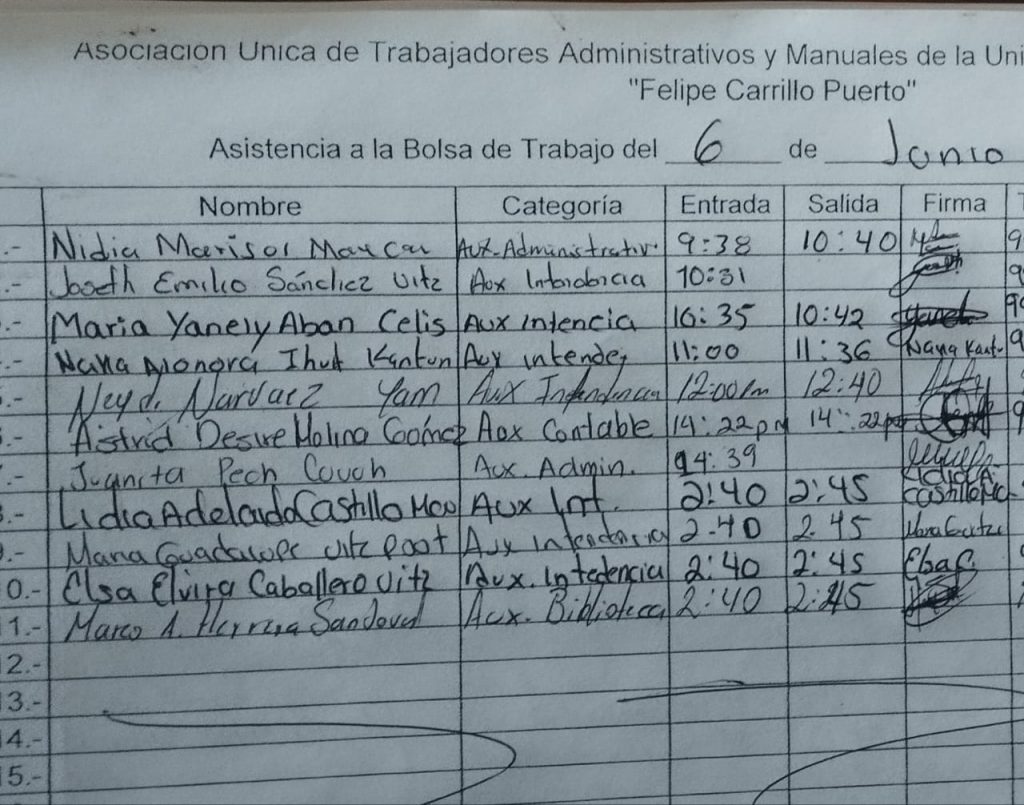 Asociacion Unica de Trabajadores Administrativos y Manuales de la Uni
"Felipe Carrillo Puerto"
Asistencia a la Bolsa de Trabajo del 6 de Junio
Nombre Categoría Entrada Salida Firma
.- Nidia Marisol Aux. Administrativ. 9:38 10:40 9
.- Joseth Emilio Sánchez Uitz Aux 10:31 9
.- Maria Yanely Aban Celis Aux intencia 10:42 9
.- Ihuit Kantun Aux intende, 11:00 11:36 9
.- Neydi Narvaez Yam Aux Intendencia 12:00 pm 12:40
.- Astrid Desire Molina Gómez Aux Contable 14:22 pm 14:22 pm 9
.- Juanita Pech Couoh Aux. Admin. 14:39
.- Lidia Adelaida Castillo Moo Aux Int. 2:40 2:45 Lidia A. Castillo Mo.
9.- Maria Guadalupe Uitz Poot Aux Intendencia 2:40 2:45
0.- Elsa Elvira Caballero Uitz Aux. Intedencia 2:40 2:45 Elsa C.
1.- Marco A. Herrera Sandoval Aux. Biblioteca 2:40 2:45
2.-
3.-
4.-
5.-